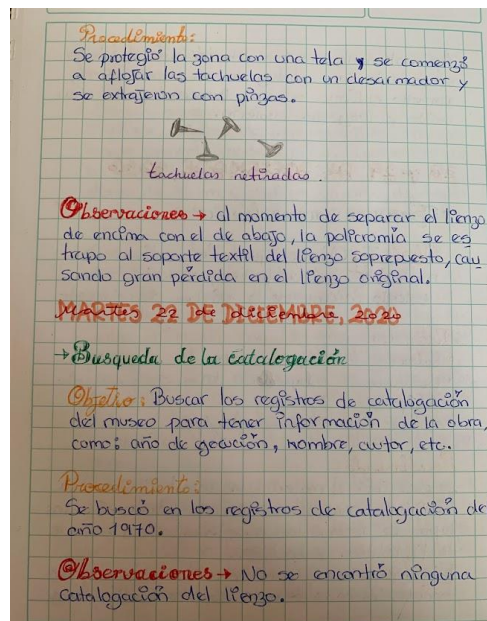 Procedimiento:
Se protegió la zona con una tela y se comenzó
a aflojar las tachuelas con un desarmador y
se extrajeron con pinzas.
tachuelas retiradas.
Observaciones → al momento de separar el lienzo
de encima con el de abajo, la policromía se es
trapo al soporte textil del lienzo sobrepuesto, cau
sando gran pérdida en el lienzo original.
MARTES 22 De DICIEMBRE, 2020
→ Busqueda de la catalogación
Objetio: Buscar los registros de catalogación
del museo para tener información de la obra,
como: año de ejecución, nombre, autor, etc.
Procedimiento:
Se buscó en los registros de catalogación de
año 1970.
Observaciones → No se encontró ninguna
catalogación del lienzo.